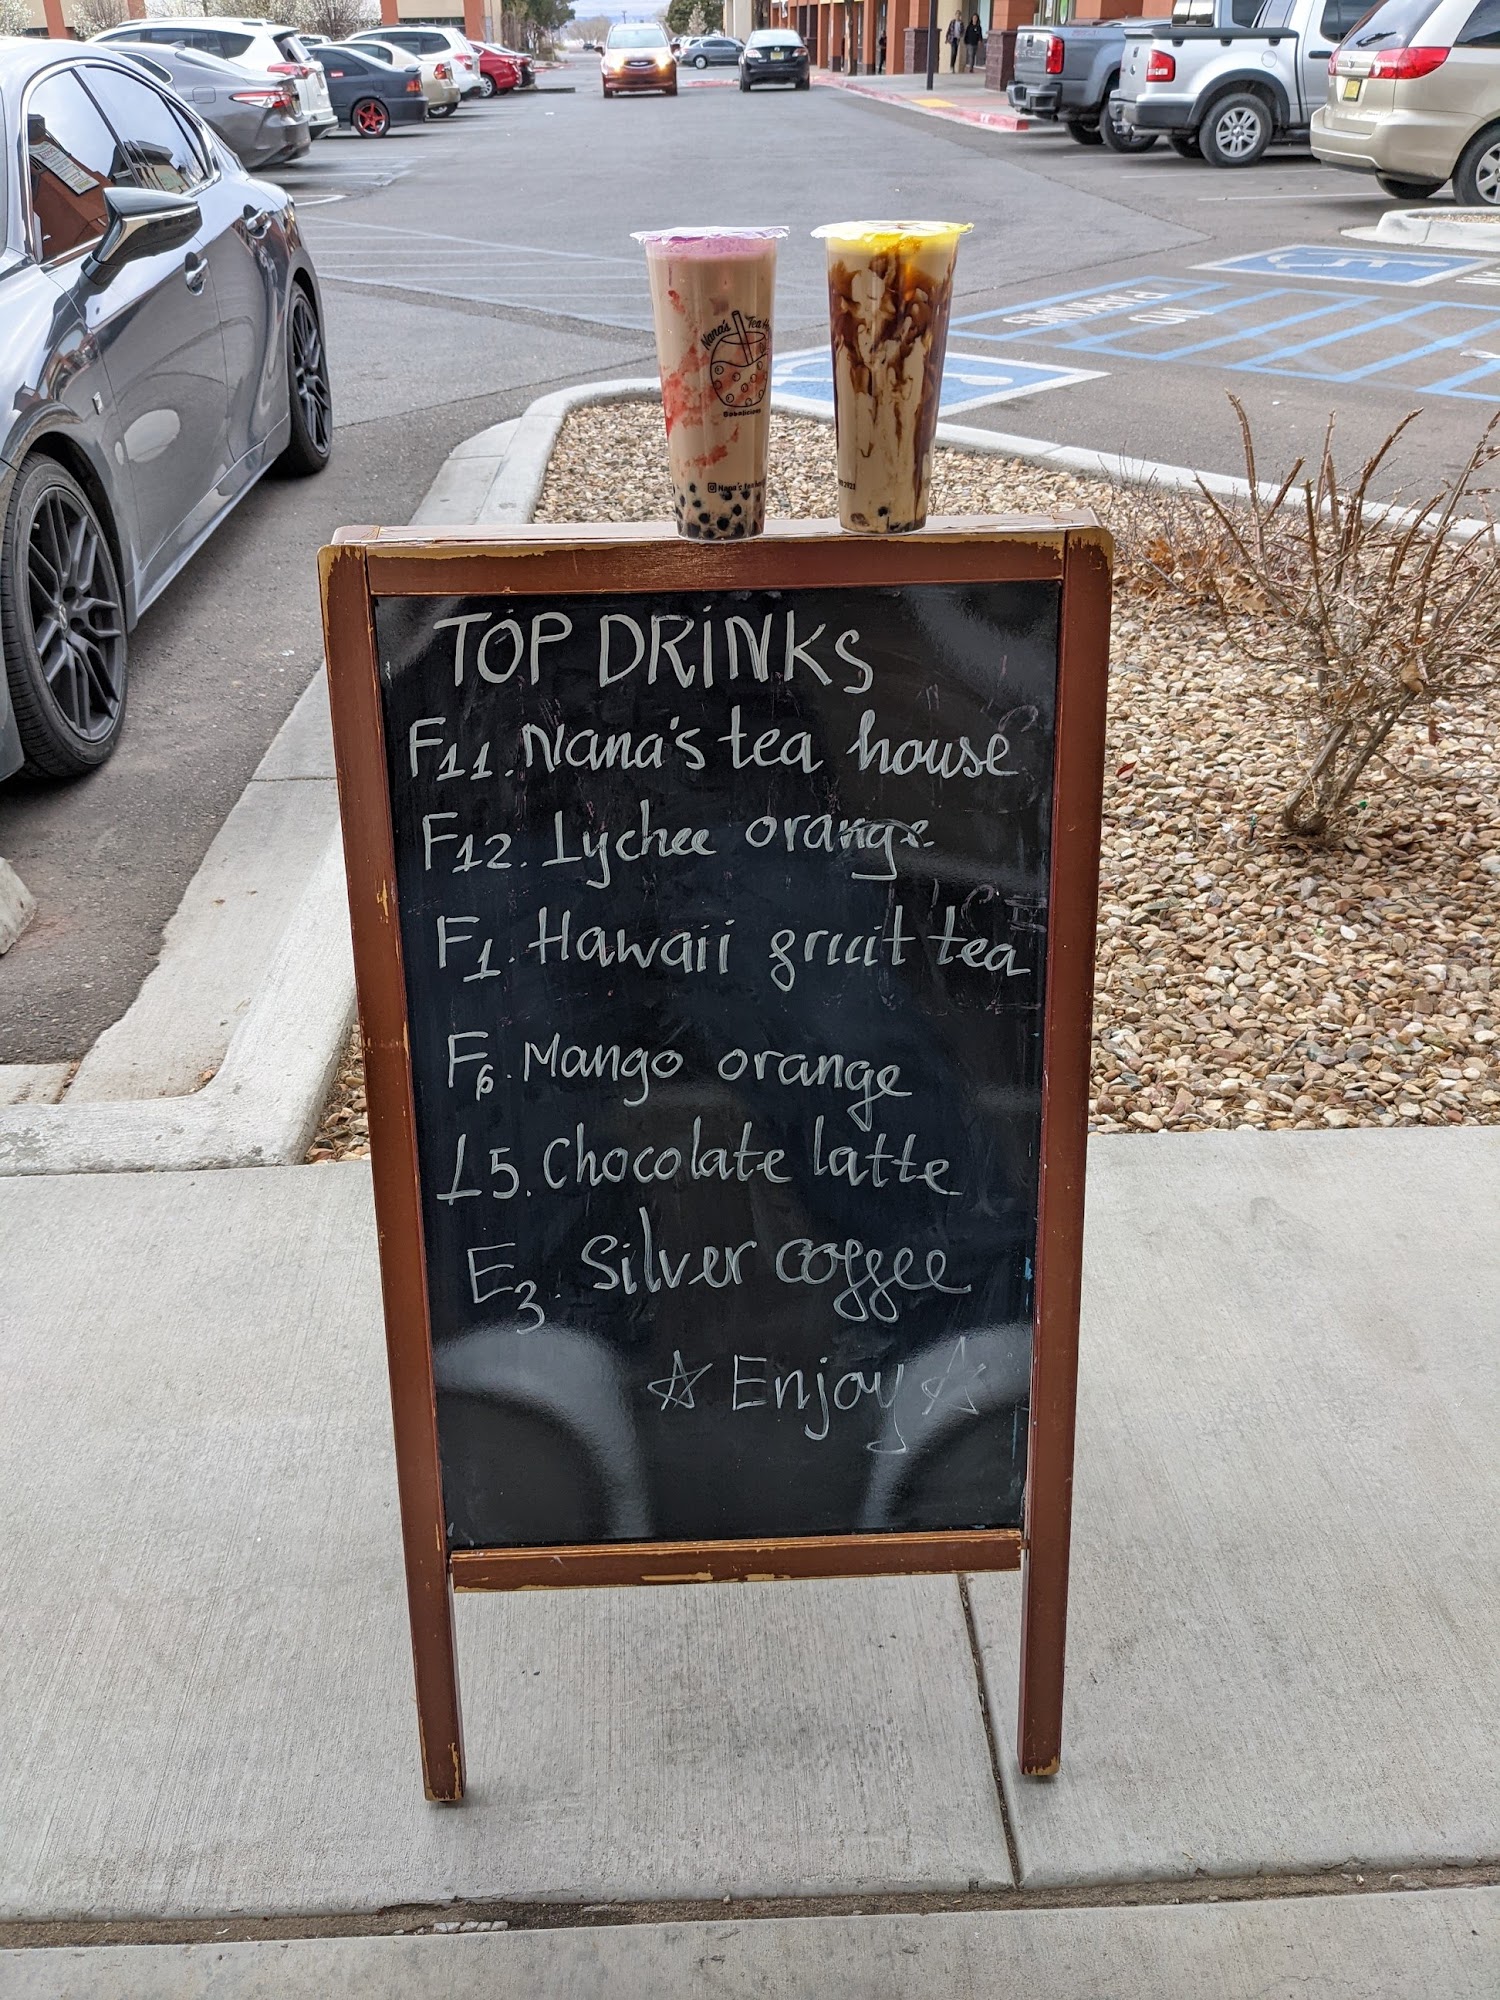 Nana's Tea H
Bobalicious
Nana's tea hou
2021
NO
PARKING
TOP DRINKS
F11. Nana's tea house
F12. Lychee orange
F1. Hawaii fruit tea
F6. Mango orange
L5. Chocolate latte
E3. Silver coffee
☆ Enjoy ☆